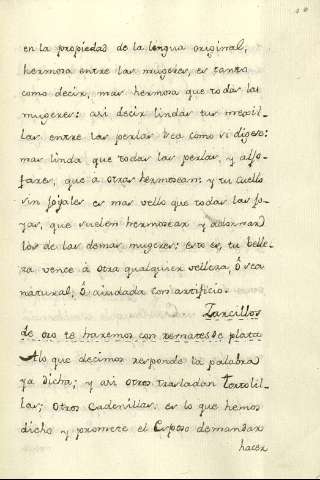 en la propiedad de la lengua original,
hermosa entre las mugeres, es tanto
como decir, mas hermosa que todas las
mugeres: asi decir lindas tus mexil-
las entre las perlas sea como si digese:
mas linda que todas las perlas, y aljo-
fares, que a otras hermosean; y tu Cuello
sin joyales es mas vello que todas las jo-
yas, que suelen hermosear y adornar
los de las demas mugeres: esto es, tu belle-
za vence à otra qualquier velleza, ô sea
natural, ò aiudada con artificio.
Zarcillos
de oro te haremos con remates de plata
Alo que decimos responde la palabra
ya dicha; y asi otros trasladan
llas; Otros Cadenillas. es lo que hemos
dicho y promete el Esposo demandar
hacer